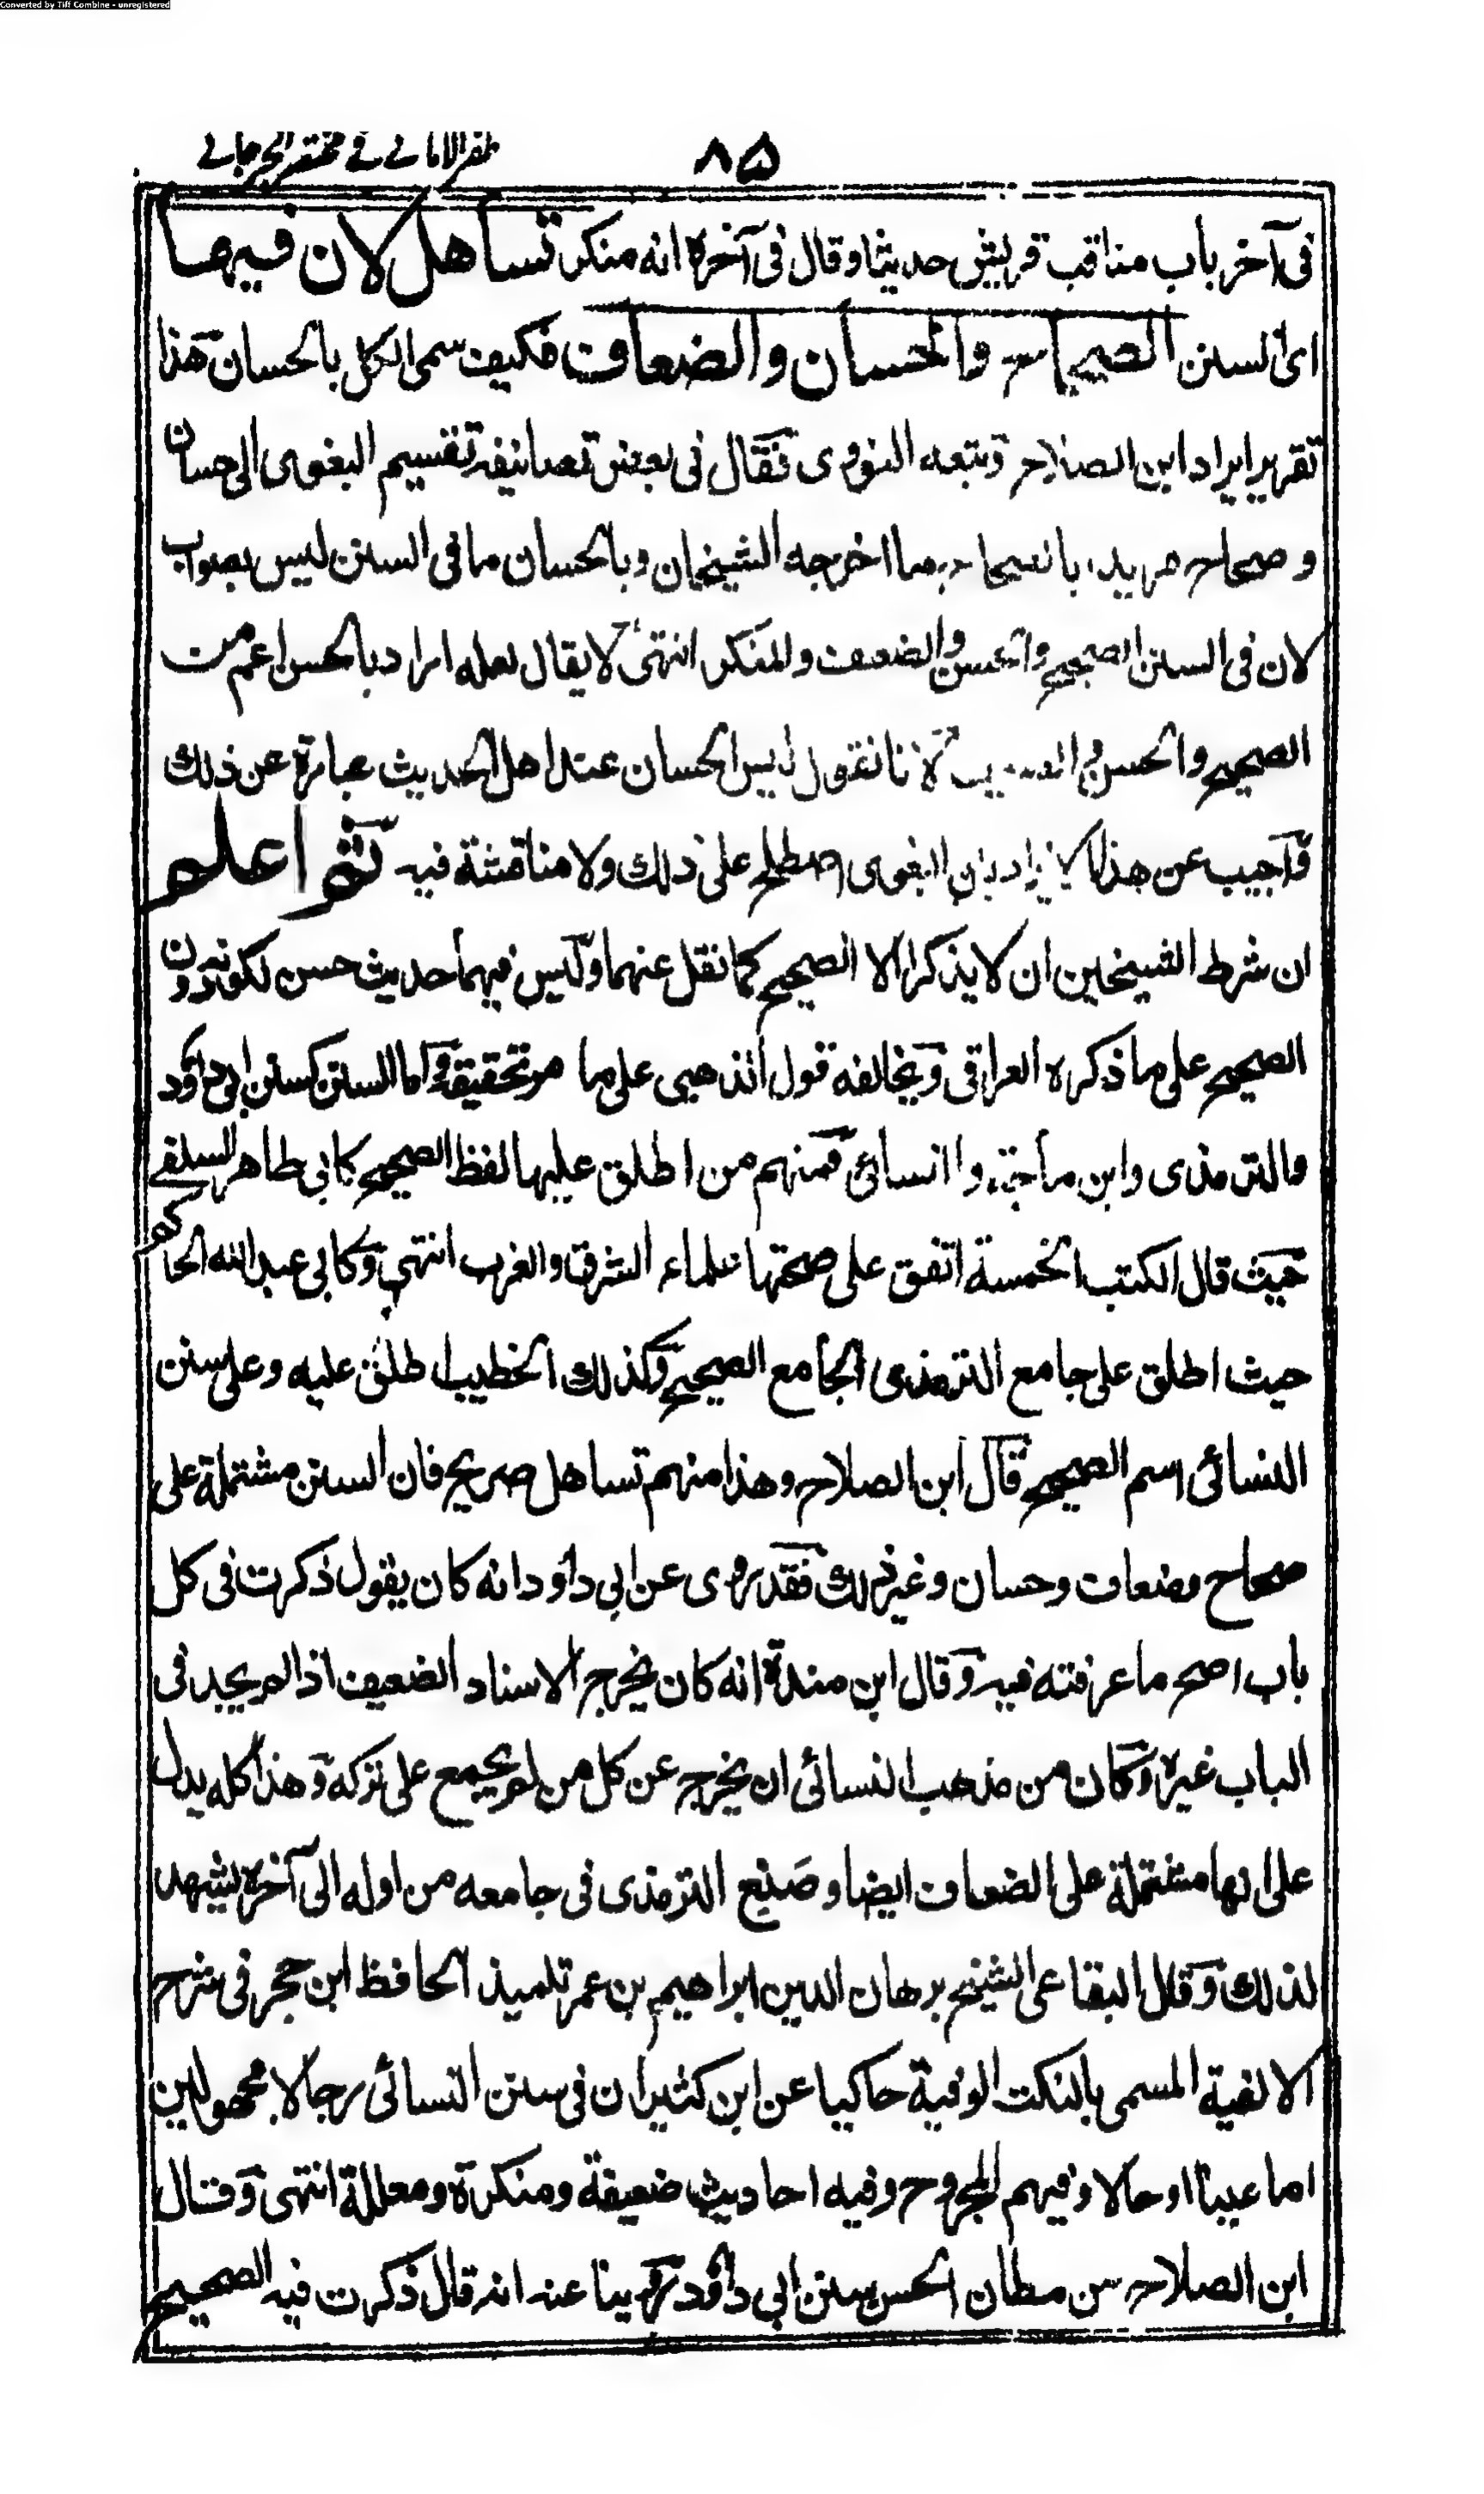 Converted by Tiff Combine - unregistered
٨٥ ظفر الاماني في مختصر الجرجاني
في آخر باب مناقب قريش حديثا وقال في آخره انه منكر تساهل لان فيها
اي السنن الصحاح والحسان والضعاف فكيف سمى الكل بالحسان هذا
تقرير ايراد ابن الصلاح وتبعه النووى فقال في بعض تصانيفه تقسيم البغوى الى حسان
وصحاح مريدا بالصحاح ما اخرجه الشيخان وبالحسان ما في السنن ليس بصواب
لان في السنن الصحيح والحسن والضعيف والمنكر انتهى لا يقال لعله اراد بالحسن اعم من
الصحيح والحسن والضعيف لانا نقول ليس الحسان عند اهل الحديث عبارة عن ذلك
واجيب عن هذا الايراد بان البغوى اصطلح على ذلك ولا مناقشة فيه ثم اعلم
ان شرط الشيخين ان لا يذكرا الا الصحيح كما نقل عنهما وليس فيهما حديث حسن لكونه دون
الصحيح على ما ذكره العراقي ويخالفه قول الذهبى على ما مر تحقيقه واما السنن كسنن ابي داؤد
والترمذى وابن ماجة والنسائى فمنهم من اطلق عليها لفظ الصحيح كابي طاهر السلفي
حيث قال الكتب الخمسة اتفق على صحتها علماء الشرق والغرب انتهى وكابي عبد الله الحاكم
حيث اطلق على جامع الترمذى الجامع الصحيح وكذلك الخطيب اطلق عليه وعلى سنن
النسائى اسم الصحيح قال ابن الصلاح وهذا منهم تساهل صريح فان السنن مشتملة على
صحاح وضعاف وحسان وغير ذلك فقد روى عن ابي داؤد انه كان يقول ذكرت في كل
باب اصح ما عرفته فيه وقال ابن مندة انه كان يخرج الاسناد الضعيف اذا لم يجد في
الباب غيره وكان من مذهب النسائى ان يخرج عن كل من لم يجمع على تركه وهذا كله يدل
على انها مشتملة على الضعاف ايضا وصنيع الترمذى في جامعه من اوله الى آخره يشهد
لذلك وقال البقاعى الشيخ برهان الدين ابراهيم بن عمر تلميذ الحافظ ابن حجر في شرح
الالفية المسمى بالنكت الوفية حاكيا عن ابن كثير ان في سنن النسائى رجالا مجهولين
اما عينا او حالا وفيهم المجروح وفيه احاديث ضعيفة ومنكرة ومعللة انتهى وقال
ابن الصلاح من مظان الحسن سنن ابي داؤد روينا عنه انه قال ذكرت فيه الصحيح